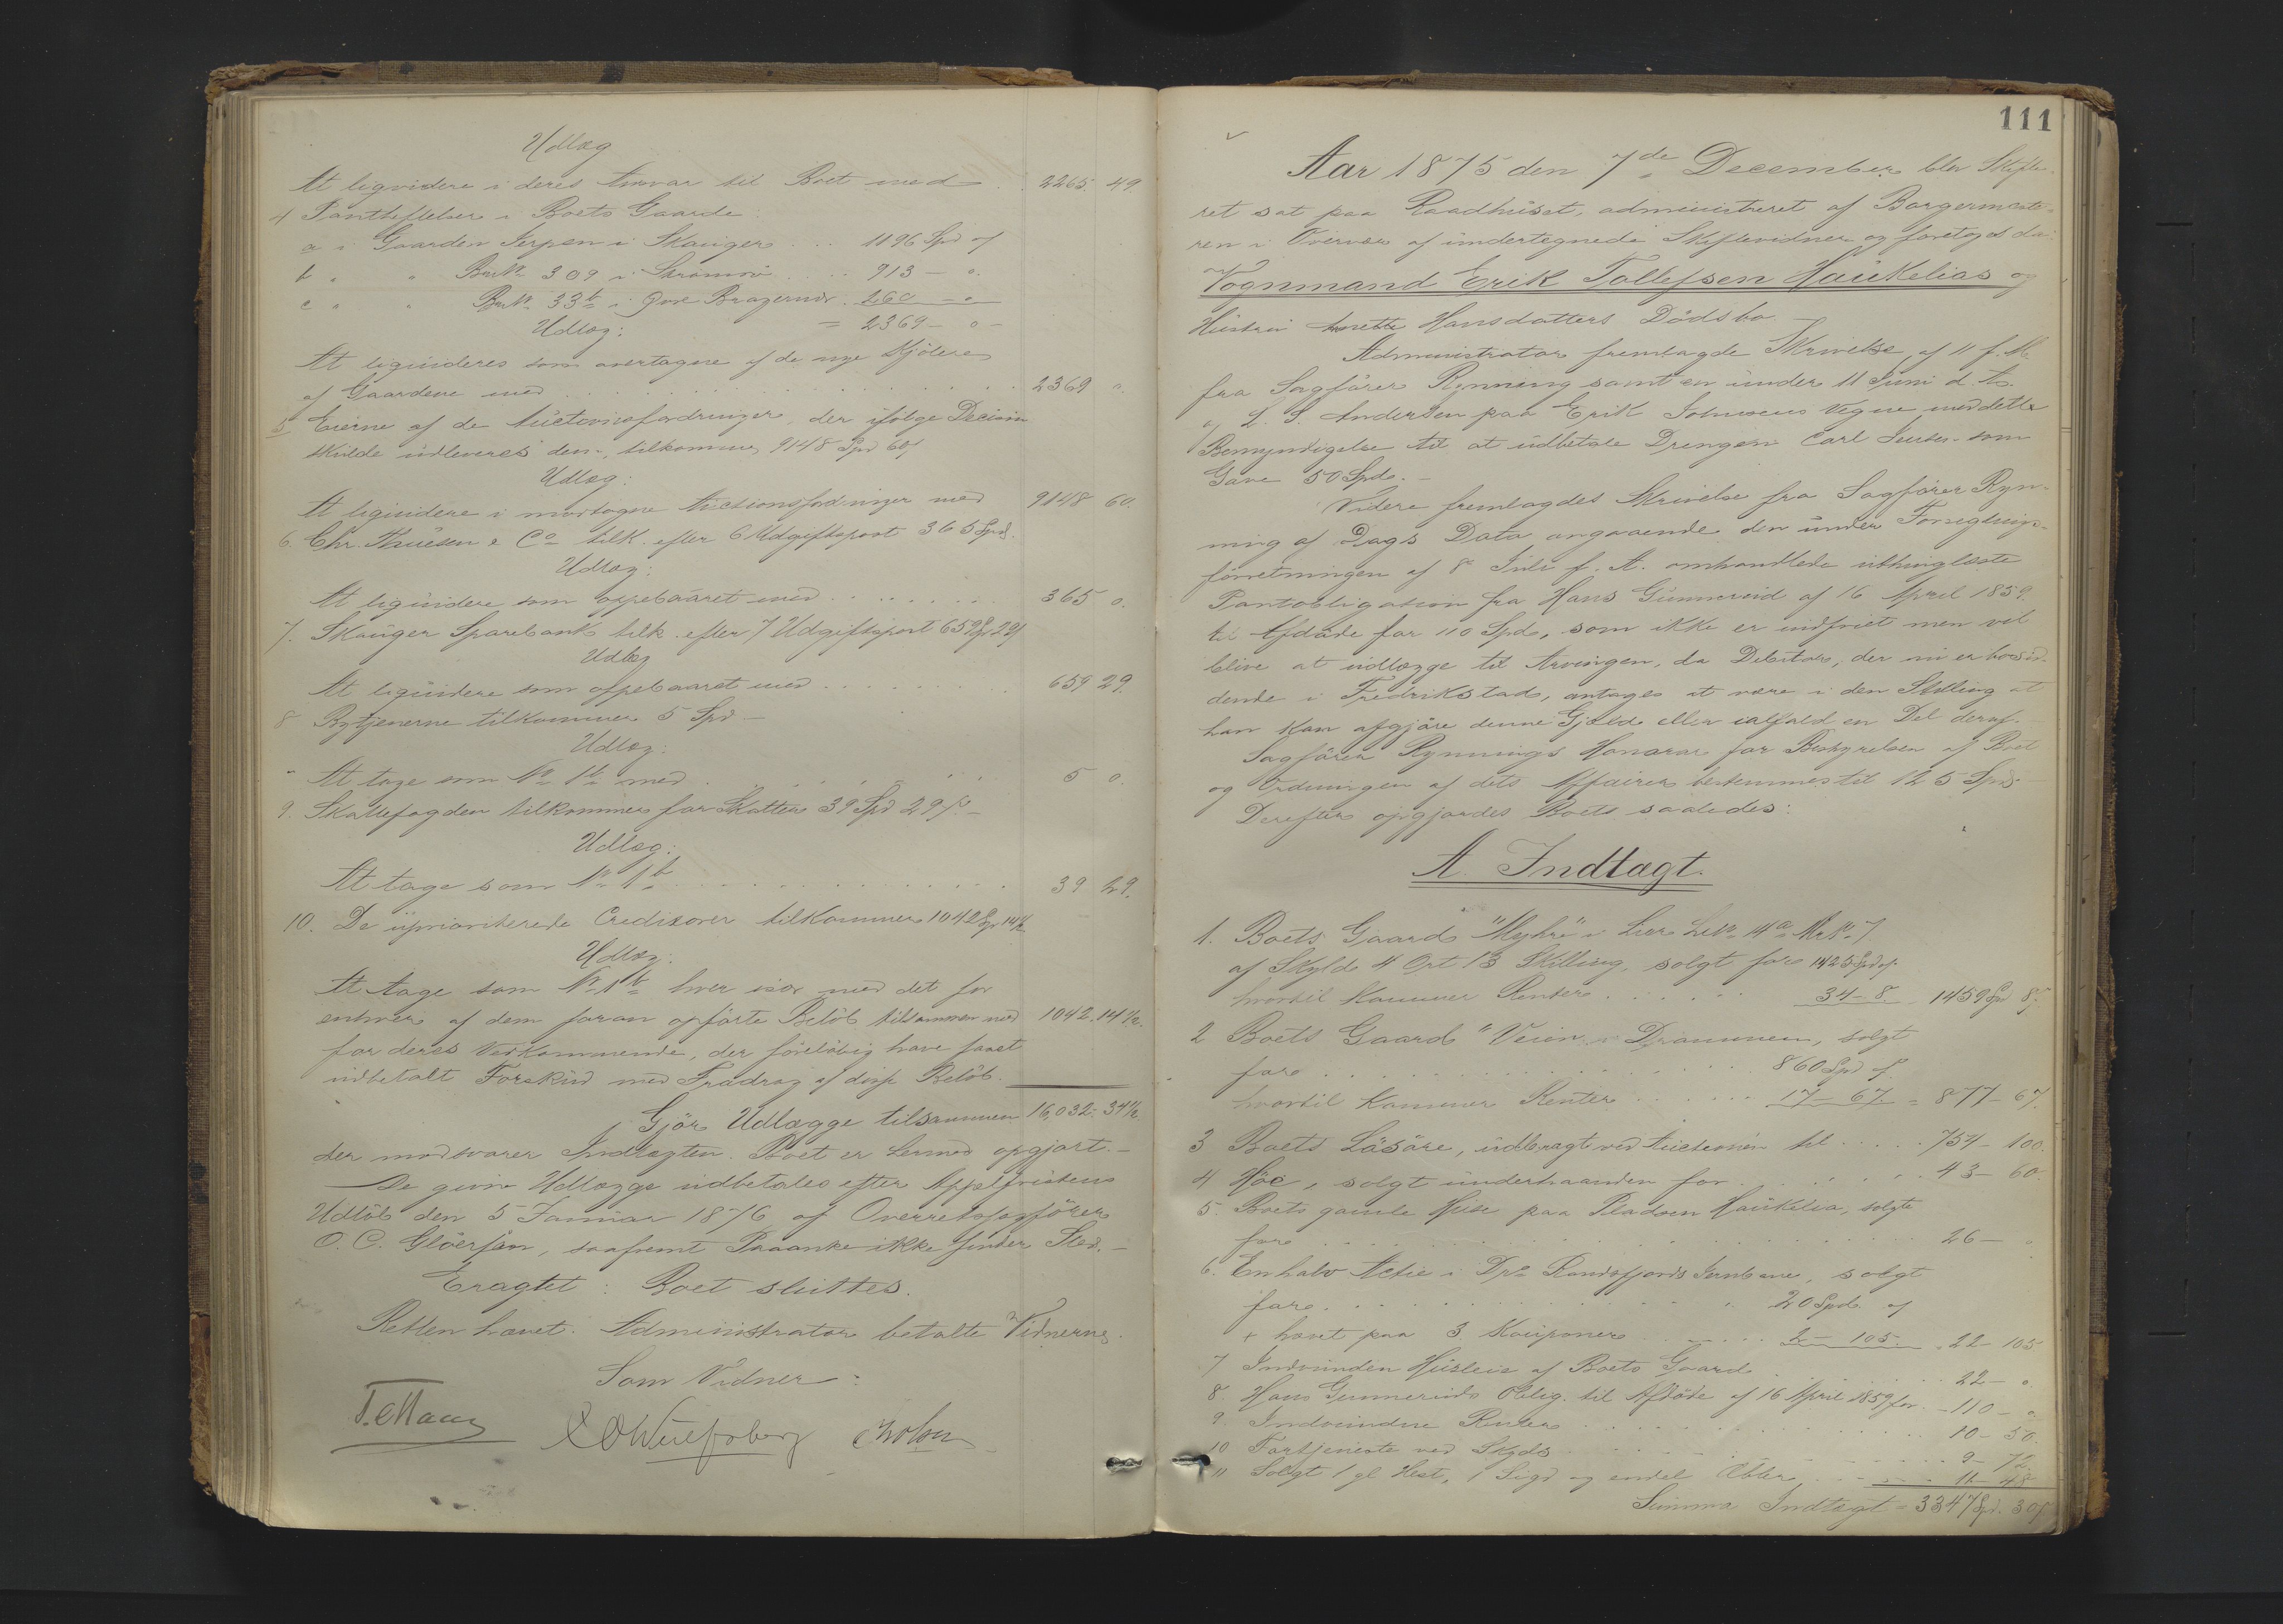 Udlæg
At liqvidere i deres Ansvar til Boet med . 2265. 49.
4 Pantheftelser i Boets Gaarde:
a i Gaarden Jerpen i Skauger ... 1196 Spd os
b " " BNo 309 i Strømsø .... 913 - o.
c " " BNo 33b i Øvre Bragernæs . 260 - o
Udlæg: = 2369 - o -
At liqvideres som overtagne af de nye Kjøbere
af Gaardene med .............. 2369 o.
5 Eierne af de Auctionsfordringer, der ifølge Decision
skulde udleveres dem, tilkommer 9148 Spd 60s
Udlæg:
At liqvidere i modtagne Auctionsfordringer med 9148 60.
6. Chr. Thuesen & Co tilk. efter 6 Udgiftspost 365 Spd.
Udlæg:
At liqvidere som oppebaaret med ........ 365 o.
7. Skauger Sparebank tilk. efter 7 Udgiftspost 659 Sp 29s
Udlæg
At liqvidere som oppebaaret med ........ 659 29.
8 Bytjenerne tilkommer 5 Spd -
Udlæg:
At tage som No 1b med ......... 5 o.
9. Skattefogden tilkommer for Skatter 39 Spd 29s. -
Udlæg:
At tage som No 1b .............. 39 29.
10. De upriviterede Creditorer tilkommer 1042 Sp 14½
Udlæg:
At tage som No 1b hver især med det for
enhver af dem foran opførte Beløb tilsammen med 1042. 14½.
for deres Vedkommende, der foreløbig have faaet
udbetalt Forskud med Fradrag af disse Beløb.
Gjør Udlægge tilsammen 16,032. 34½
der modsvarer Indtægten. Boet er hermed opgjort. -
De givne Udlægge udbetales efter Appelfristens
Udløb den 5 Januar 1876 af Overretssagfører
O. C. Gløersen, saafremt Paaanke ikke finder Sted. -
Eragtet: Boet sluttes.
Retten hævet. Administrator betalte Vidnerne.
Som Vidner:
111
Aar 1875 den 7de December blev Skifte-
ret sat paa Raadhuset, administreret af Borgermeste-
ren i Overvær af undertegnede Skiftevidner og foretoges da:
Vognmand Erik Tollefsen Haukelias og
Hustru Anette Hansdatters Dødsbo -
Administrator fremlagde Skrivelse af 11 f. M.
fra Sagfører Rynning samt en under 11 Juni d. A.
af L. S. Andersen paa Erik Johnsens Vegne meddelte
Bemyndigelse til at udbetale Drengen Carl Jensen som
Gave 50 Spd. -
Videre fremlagdes Skrivelse fra Sagfører Ryn-
ning af Dags Dato angaaende den under Forseglings-
forretningen af 8 Juli f. A. omhandlede uthinglæste
Pantobligation fra Hans Gunnerud af 16 April 1859
til Afdøde for 110 Spd, som ikke er indfriet men vil
blive at udlægge til Arvingen, da Debitor, der nu er bosid-
dende i Fredrikstad, antages at være i den Stilling at
han kan afgjøre denne Gjeld eller ialfald en Del deraf. -
Sagfører Rynnings Honorar for Bestyrelsen af Boet
og Ordningen af dets Affairer bestemmes til 125 Spd. -
Derefter opgjordes Boets saaledes:
A. Indtægt.
1. Boets Gaard "Myhre" i Lier LNo 14a MNo 7
af Skyld 4 Ort 13 Skilling, solgt for 1425 Spd os.
hvortil kommer Renter ...... 34 - 8. 1459 Spd 8s.
2 Boets Gaard "Veien" i Drammen, solgt
for .................. 860 Spd os
hvortil kommer Renter ...... 17 - 67. = 877 - 67.
3 Boets Løsøre, udbragt ved Auctionen til .... 754 - 100.
4 Høe, solgt underhaanden for ....... 43 - 60.
5. Boets gamle Huse paa Pladsen Haukelia, solgte
for .................. 26 - o
6. En halv Actie i Drs Randsfjords Jernbane, solgt
for .............. 20 Spd. os
+ hævet paa 3 Kouponer ...... 2 - 105. . 22 - 105
7 Indvunden Husleie af Boets Gaard ....... 22 - o
8. Hans Gunneruds Oblig. til Afdøde af 16 April 1859 for. - 110 - o.
9. Indvundne Renter .............. 10 - 50.
10 Fortjeneste ved Skyds ............ 9 - 72.
11 Solgt 1 gl Hest, 1 Sigd og endel Æbler ...... 11 - 48
Summa Indtægt = 3347 Spd. 30s